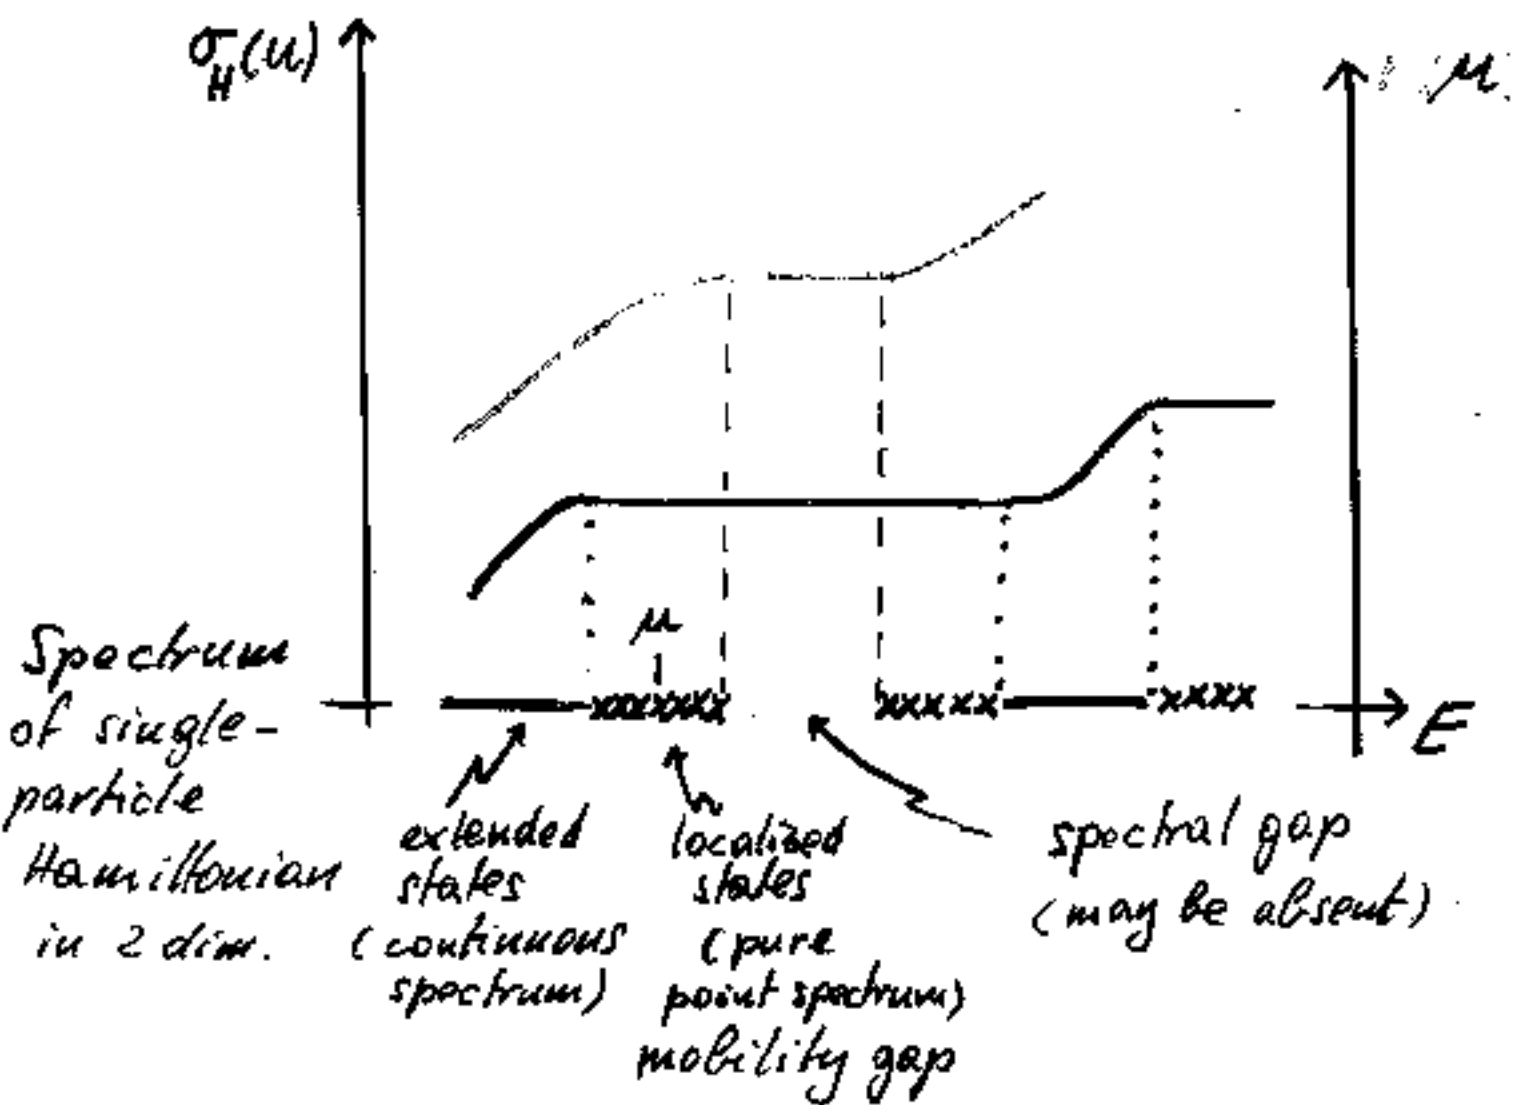 σ_H(μ)
μ
μ
E
Spectrum
of single-
particle
Hamiltonian
in 2 dim.
extended
states
(continuous
spectrum)
localized
states
(pure
point spectrum)
mobility gap
spectral gap
(may be absent)